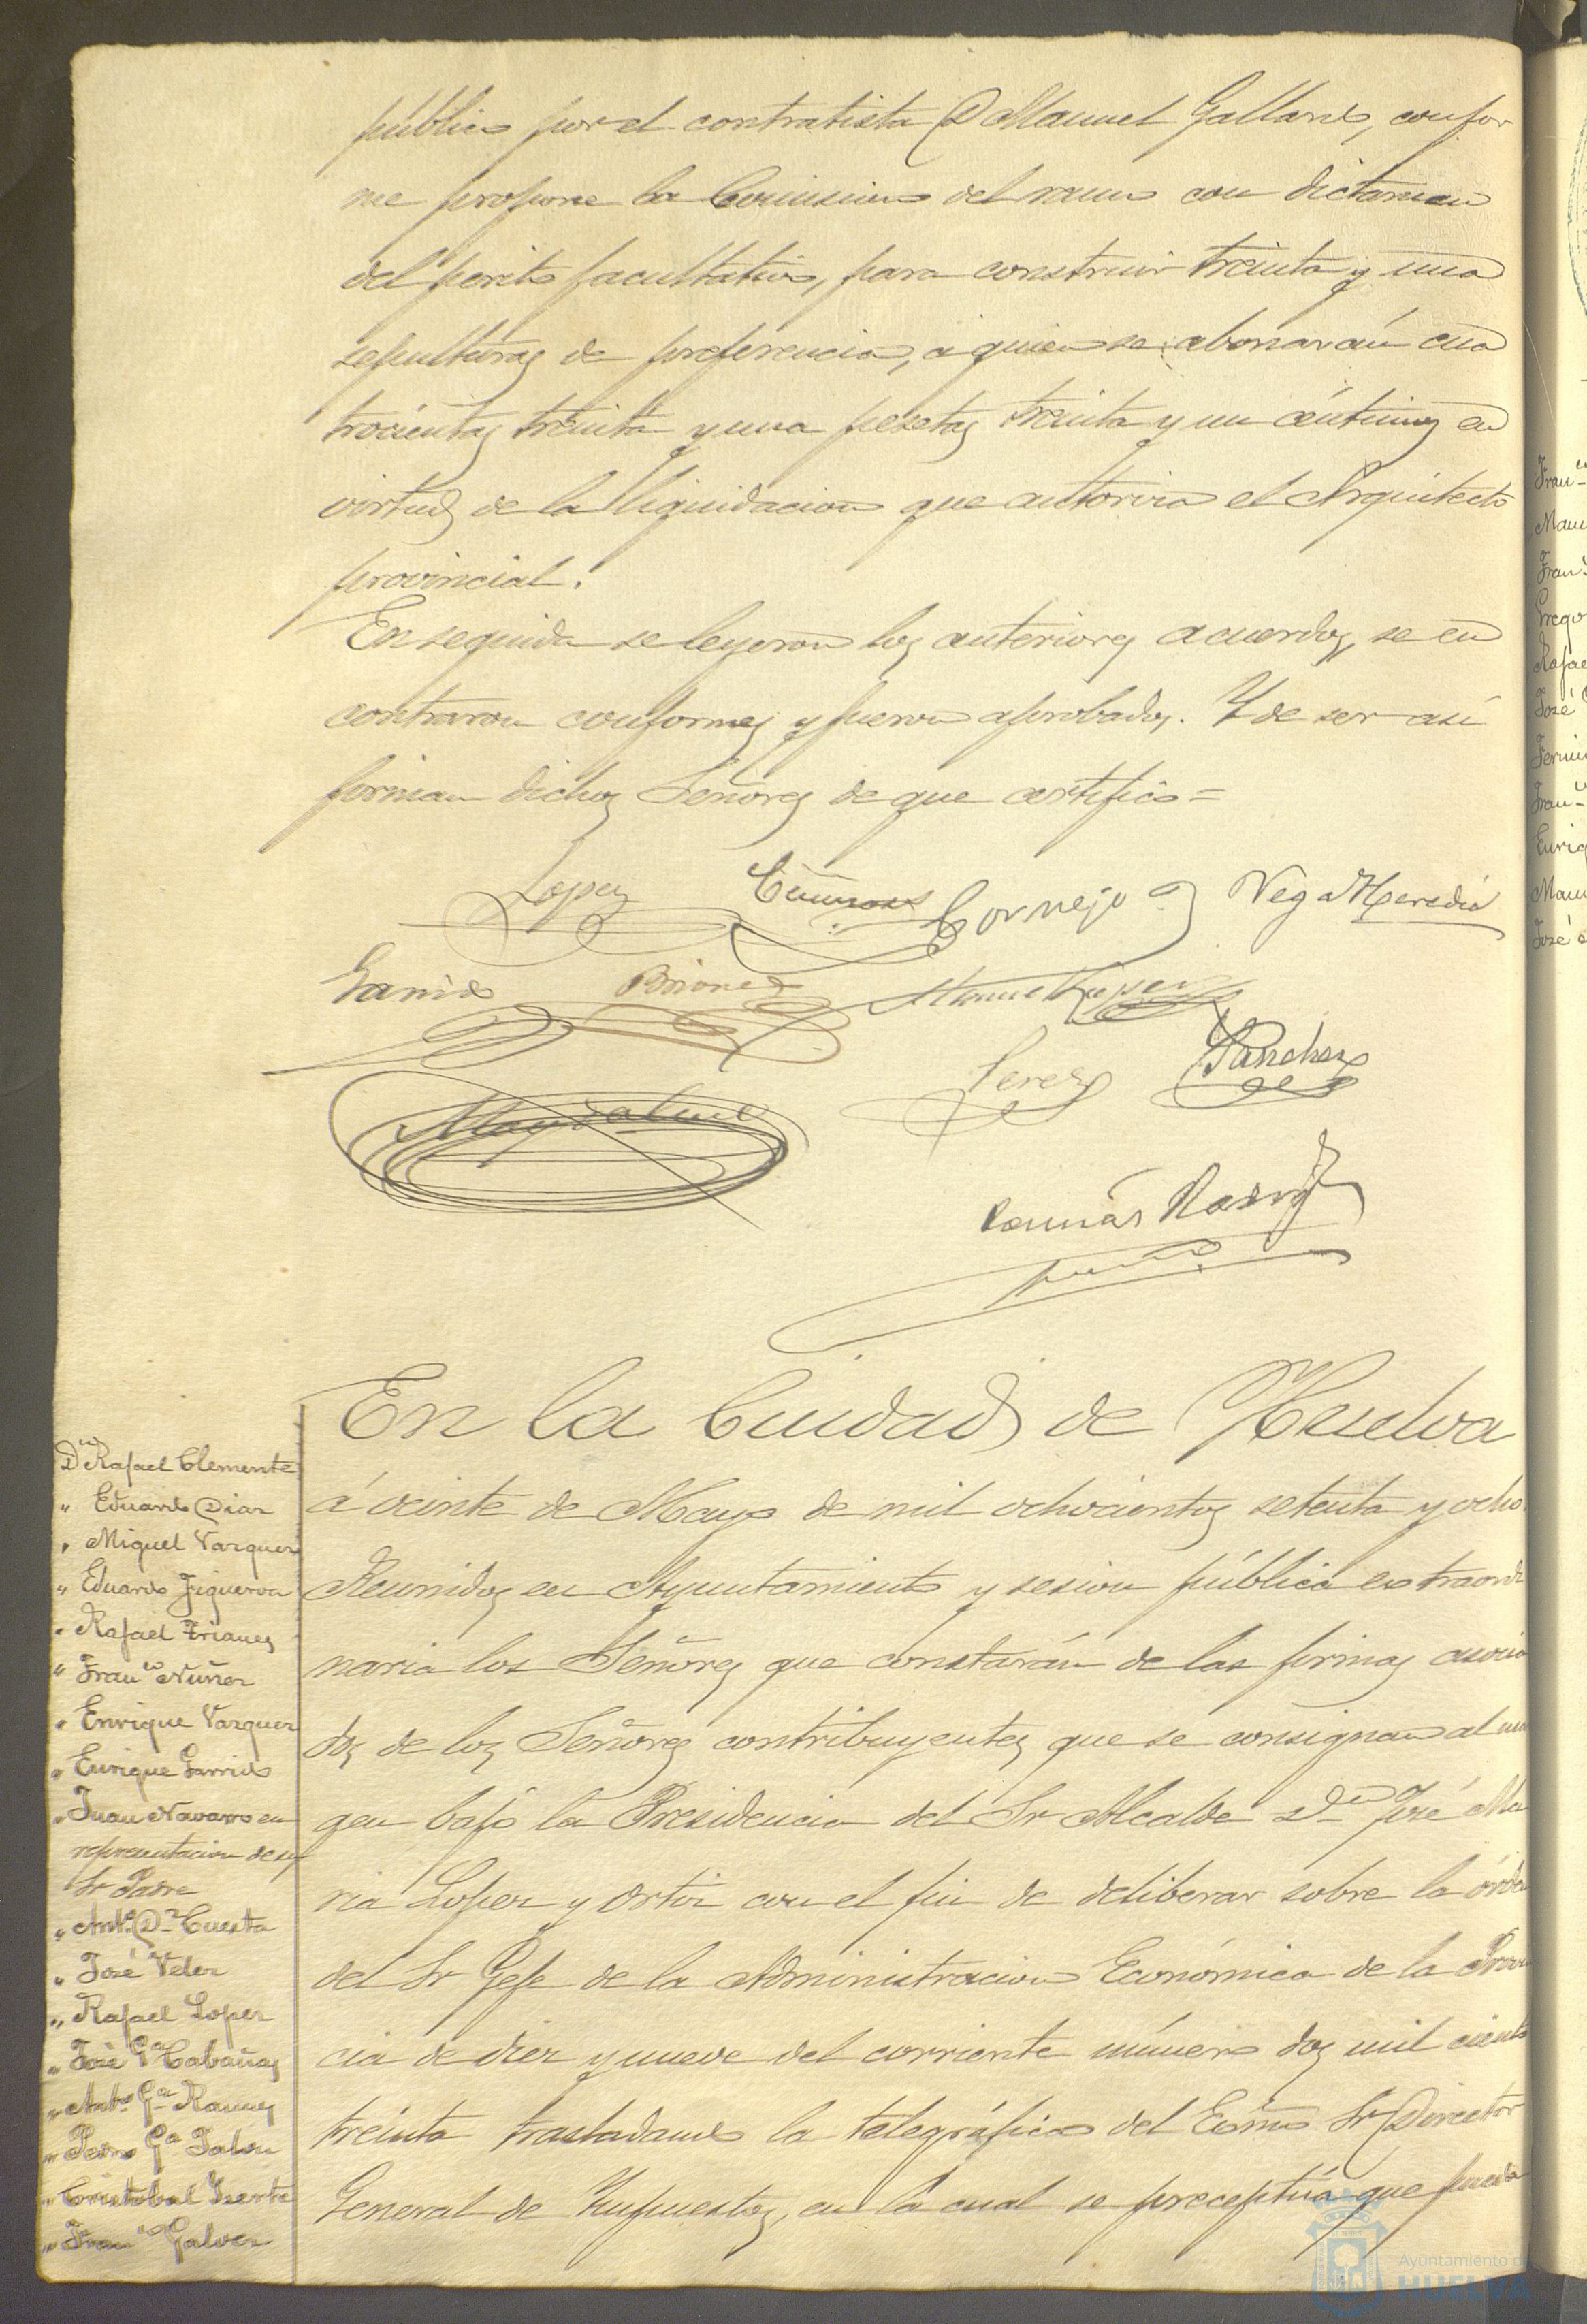 público por el contratista D Manuel Gallardo, confor
me propone la Comision del ramo con dictamen
del perito facultativo, para construir treinta y una
sepulturas de preferencia, a quien se abonarán cua
trocientas treinta y una pesetas treinta y un céntimos en
virtud de la liquidacion que autoriza el Arquitecto
provincial.
Enseguida se leyeron los anteriores acuerdos, se en
contraron conformes y fueron aprobados. Y de ser asi
firman dichos Señores de que certifico=
Lopez Cornejo Vega Heredia
Garrido Briones Manuel Lopez
Perez Sanchez
Magdalena
Tomás
En la Ciudad de Huelva
á veinte de Mayo de mil ochocientos setenta y ocho
Reunidos en Ayuntamiento y sesion pública extraordi
naria los Señores que constarán de las firmas asocia
dos de los Señores contribuyentes que se consignan al mar
gen bajo la Presidencia del Sr Alcalde Dn José Ma
ria Lopez y Ortiz con el fin de deliberar sobre la órden
del Sr Gefe de la Administracion Económica de la Provin
cia de diez y nueve del corriente número dos mil ciento
treinta trasladando la telegráfica del Exmo Sr Director
General de Impuestos, en la cual se preceptúa que pueda
Dn Rafael Clemente
" Eduardo Diaz
" Miguel Vazquez
" Eduardo Figueroa
" Rafael Trianes
" Franco Nuñez
" Enrique Vazquez
" Enrique Garrido
" Juan Navarro en
representacion de su
Sr Padre
" Anto Dz Cuesta
" José Velez
" Rafael Lopez
" José Ga Cabañas
" Anto Ga Ramos
" Pedro Ga Jalon
" Cristobal
" Franco Galvez
Fran
Man
Fran
Grego
Rafae
José
Fermi
Fran
Enriq
Man
José
Ayuntamiento de
HUELVA